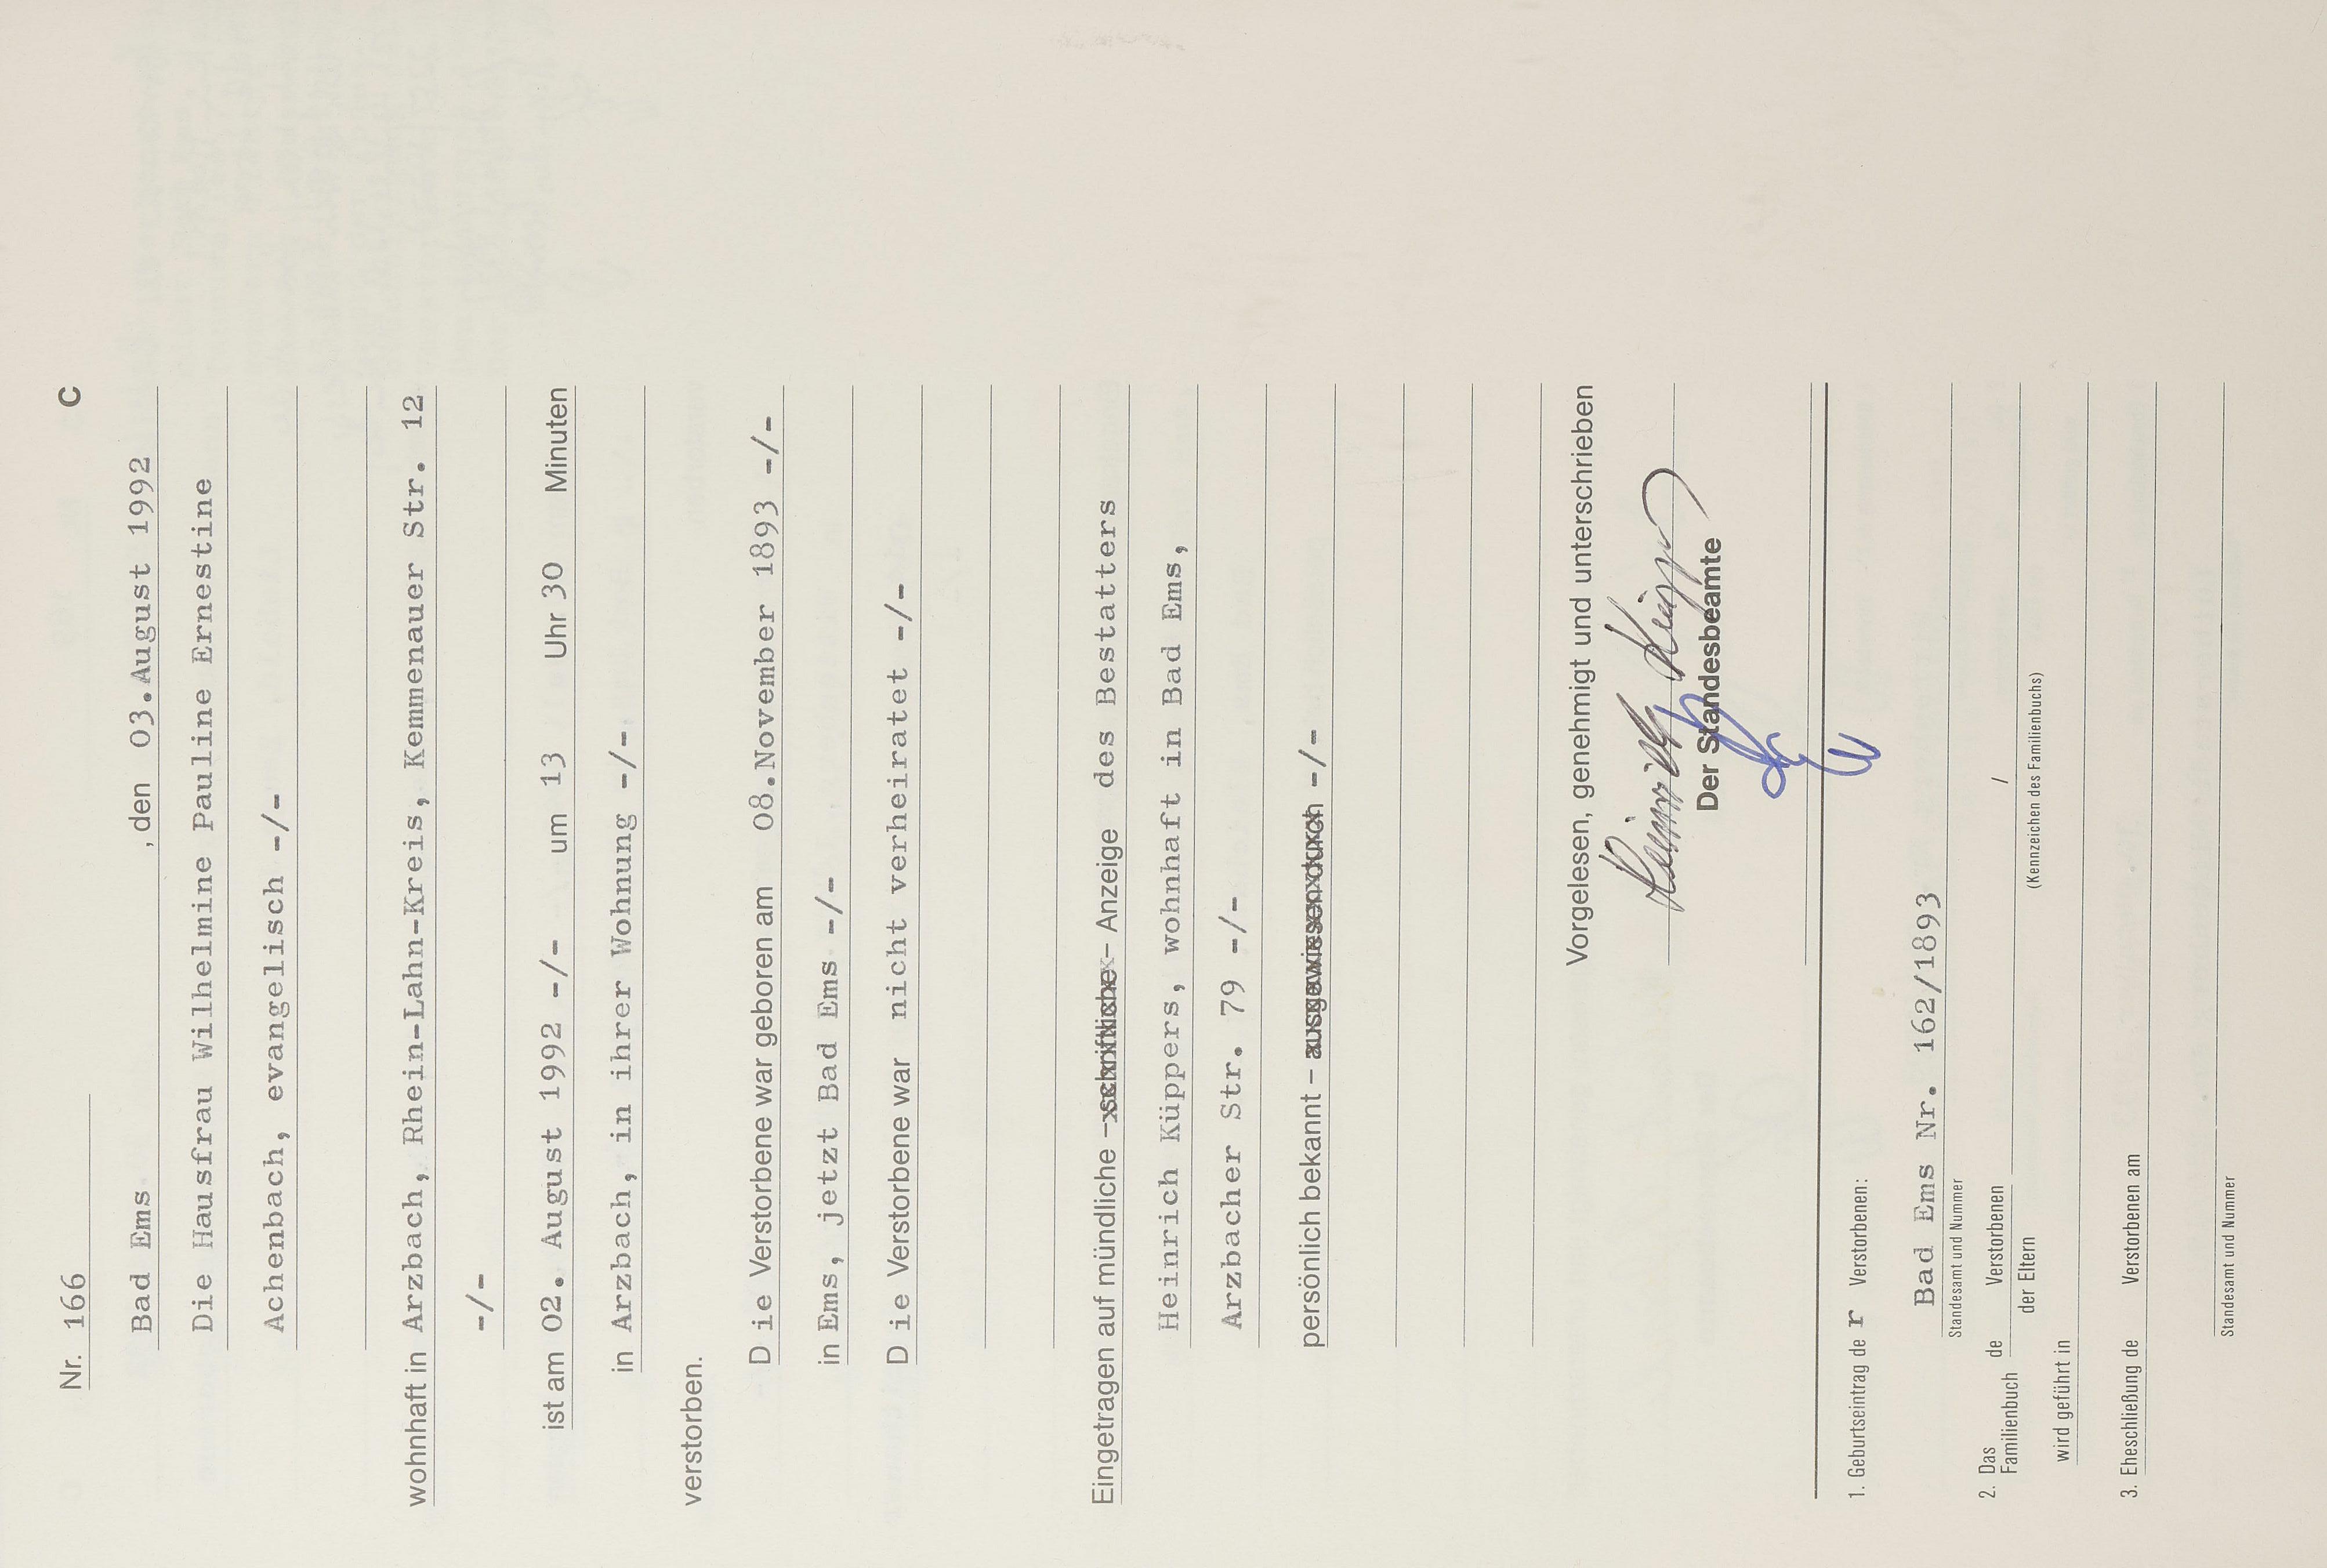 Nr. 166 C
Bad Ems , den 03.August 1992
Die Hausfrau Wilhelmine Pauline Ernestine
Achenbach, evangelisch -/-
wohnhaft in Arzbach, Rhein-Lahn-Kreis, Kemmenauer Str. 12
-/-
ist am 02. August 1992 -/- um 13 Uhr 30 Minuten
in Arzbach, in ihrer Wohnung -/-
verstorben.
D ie Verstorbene war geboren am 08.November 1893 -/-
in Ems, jetzt Bad Ems -/-
D ie Verstorbene war nicht verheiratet -/-
Eingetragen auf mündliche – schriftliche – Anzeige des Bestatters
Heinrich Küppers, wohnhaft in Bad Ems,
Arzbacher Str. 79 -/-
persönlich bekannt – ausgewiesen durch -/-
Vorgelesen, genehmigt und unterschrieben
Heinrich Küppers
Der Standesbeamte
1. Geburtseintrag de r Verstorbenen:
Bad Ems Nr. 162/1893
Standesamt und Nummer
2. Das Familienbuch de Verstorbenen /
der Eltern (Kennzeichen des Familienbuchs)
wird geführt in
3. Eheschließung de Verstorbenen am
Standesamt und Nummer